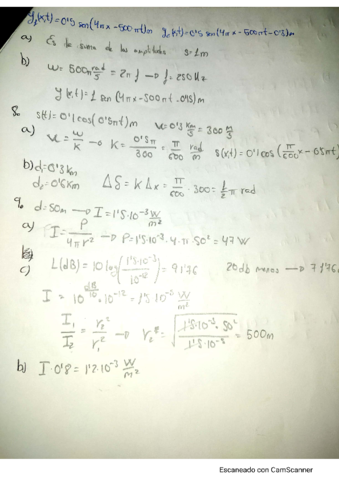 y₁(x,t)=0'5 sen(4πx-500πt)m y₂(x,t)=0'5 sen(4πx-500πt-0'3)m
a) Es la suma de las amplitudes 1m
b) ω=500π rad/s = 2πf → f=250Hz
y(x,t)=1 sen(4πx-500πt-0'15)m
8. s(t)=0'1cos(0'5πt)m v=0'3 km/s = 300 m/s
a) v = ω/k → k = 0'5π/300 = π/600 rad/m s(x,t)=0'1cos(π/600 x-0'5πt)
b) d₁=0'3km
d₂=0'6km Δδ = kΔx = π/600 · 300 = 1/2 π rad
9. d=50m → I=1'5·10⁻³ W/m²
a) I = P/4πr² → P=1'5·10⁻³·4·π·50²=47W
c) L(dB)=10log(1'5·10⁻³/10⁻¹²)=91'76 20db menos → 71'76
I = 10^(dB/10)·10⁻¹² = 1'5·10⁻⁵ W/m²
I₁/I₂ = r₂²/r₁² → r₂ = √(1'5·10⁻³·50²/1'5·10⁻⁵) = 500m
b) I·0'8=1'2·10⁻³ W/m²
Escaneado con CamScanner